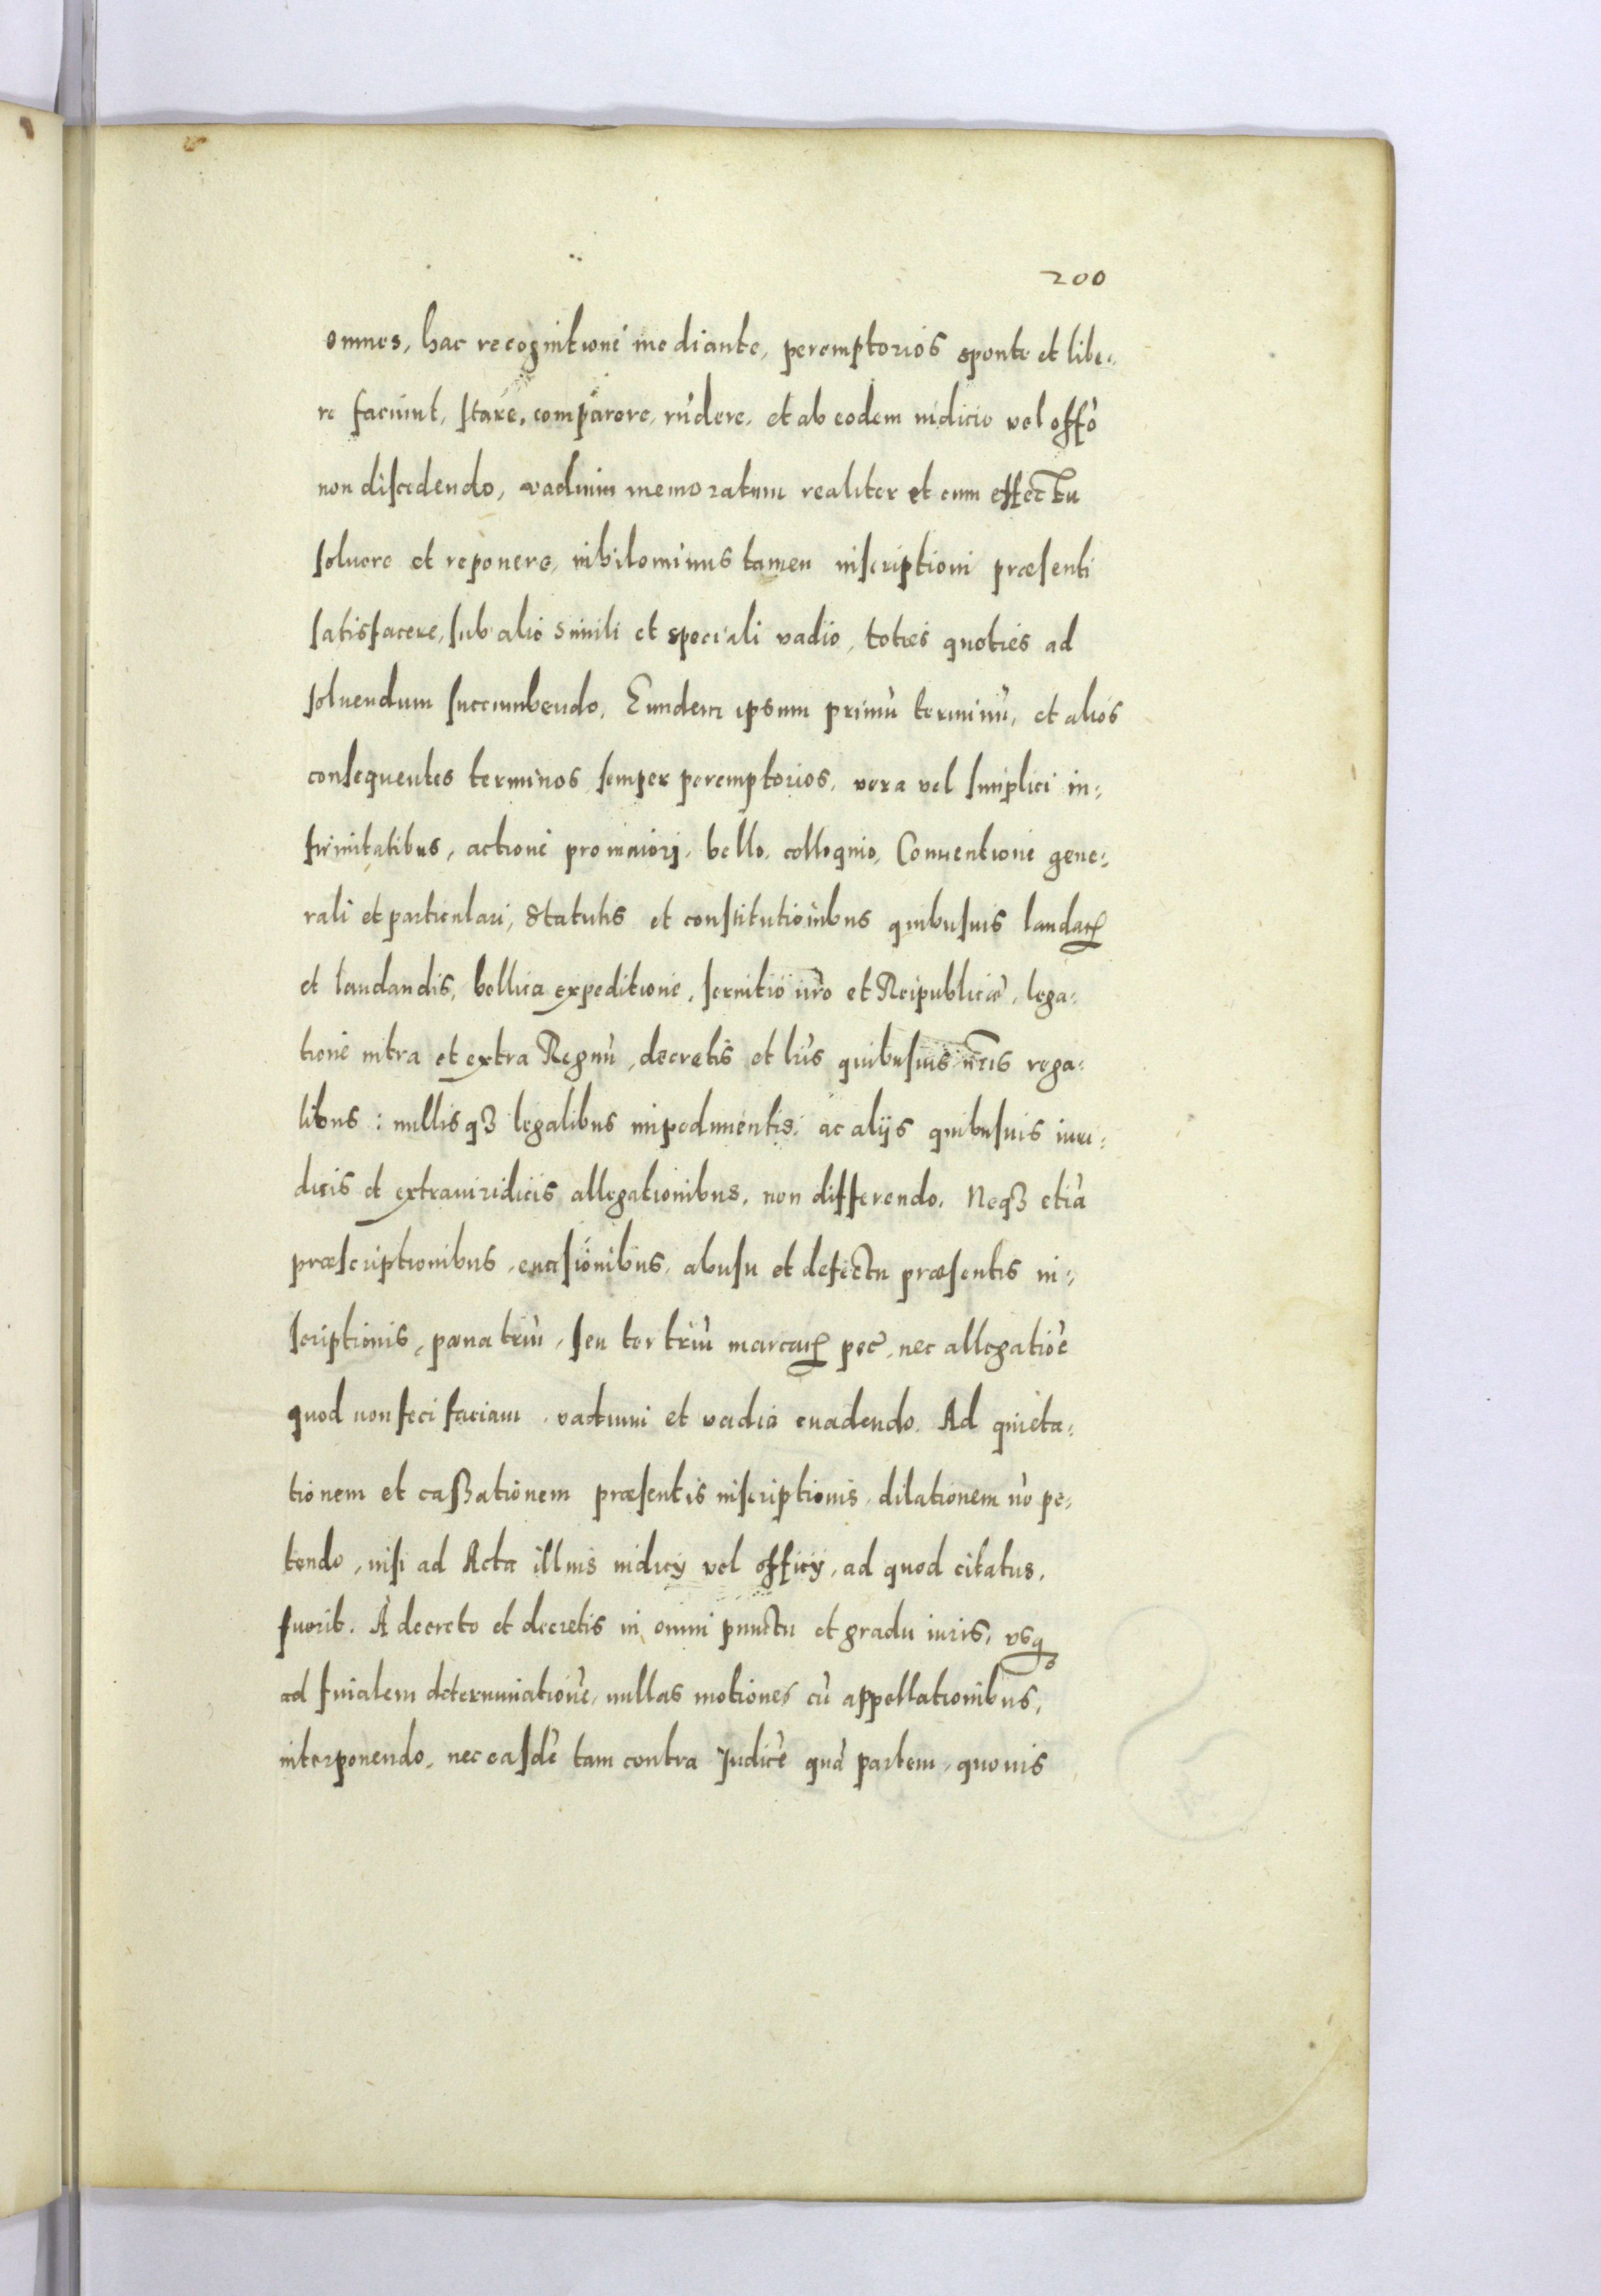 200
omnes, hac recognitione mediante, peremptorios sponte et libe:
re faciunt, stare, comparere, rn̄dere, et ab eodem iudicio vel offō
non discedendo, vadium memoratum realiter et cum effectu
soluere et reponere, nihilominus tamen inscriptioni præsenti
satisfacere, sub alio simili et speciali vadio, toties quoties ad
soluendum succumbendo. Eundem ipsum primū terminū, et alios
consequentes terminos semper peremptorios, vera vel simplici in:
firmitatibus, actione pro maiori, bello, colloquio, Conuentione gene:
rali et particulari, Statutis et constitutionibus quibusuis laudatꝭ
et laudandis, bellica expeditione, seruitio nr̄o et Reipublicæ, lega:
tione intra et extra Regnū, decretis et lr̄is quibusuis nr̄is rega:
libus: nullisqꝫ legalibus impedimentis, ac alijs quibusuis iuri:
dicis et extraiuridicis allegationibus, non differendo. Neqꝫ etiā
præscriptionibus, euasionibus, abusu et defectu præsentis in:
scriptionis, pæna triū, seu ter triū marcaꝝ pec̄, nec allegatiōe
quod non feci faciam, vadium et vadia euadendo. Ad quieta:
tionem et cassationem præsentis inscriptionis, dilationem nō pe:
tendo, nisi ad Acta illius iudicij vel officij, ad quod citatus,
fuerit. A decreto et decretis in omni punctu et gradu iuris, vsqꝫ
ad finalem determinationē, nullas motiones cū appellationibus,
interponendo, nec easdē tam contra Judicē quā partem, quouis